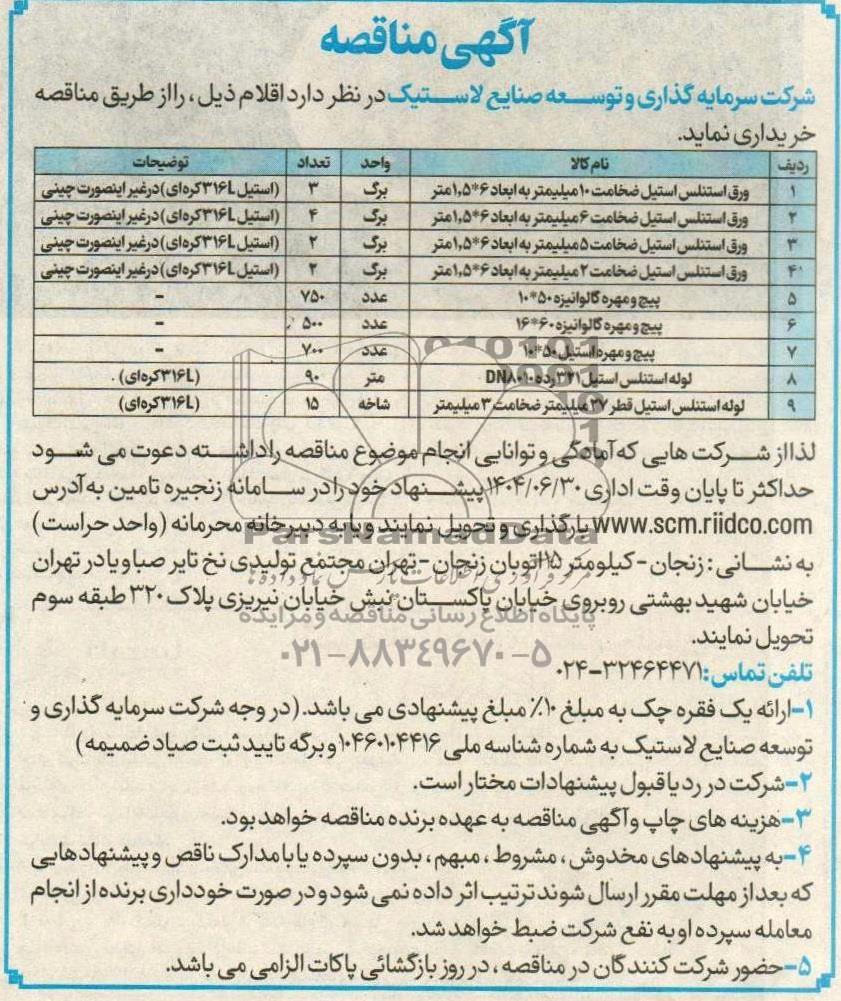 آگهی مناقصه
شرکت سرمایه گذاری و توسعه صنایع لاستیک در نظر دارد اقلام ذیل، را از طریق مناقصه
خریداری نماید.
ردیف نام کالا واحد تعداد توضیحات
۱ ورق استنلس استیل ضخامت ۱۰ میلیمتر به ابعاد ۶*۱,۵ متر برگ ۳ (استیل ۳۱۶L کره ای) در غیر اینصورت چینی
۲ ورق استنلس استیل ضخامت ۶ میلیمتر به ابعاد ۶*۱,۵ متر برگ ۴ (استیل ۳۱۶L کره ای) در غیر اینصورت چینی
۳ ورق استنلس استیل ضخامت ۵ میلیمتر به ابعاد ۶*۱,۵ متر برگ ۲ (استیل ۳۱۶L کره ای) در غیر اینصورت چینی
۴ ورق استنلس استیل ضخامت ۲ میلیمتر به ابعاد ۶*۱,۵ متر برگ ۲ (استیل ۳۱۶L کره ای) در غیر اینصورت چینی
۵ پیچ و مهره گالوانیزه ۵۰*۱۰ عدد ۷۵۰ -
۶ پیچ و مهره گالوانیزه ۶۰*۱۶ عدد ۵۰۰ -
۷ پیچ و مهره استیل ۵۰*۱۰ عدد ۷۰۰ -
۸ لوله استنلس استیل ۳۲۱ رده ۱۰ DN۸۰ متر ۹۰ (۳۱۶L کره ای)
۹ لوله استنلس استیل قطر ۲۷ میلیمتر ضخامت ۳ میلیمتر شاخه ۱۵ (۳۱۶L کره ای)
لذا از شرکت هایی که آمادگی و توانایی انجام موضوع مناقصه را داشته دعوت می شود
حداکثر تا پایان وقت اداری ۱۴۰۴/۰۶/۳۰ پیشنهاد خود را در سامانه زنجیره تامین به آدرس
www.scm.riidco.com بارگذاری و تحویل نمایند و یا به دبیرخانه محرمانه (واحد حراست)
ParsNamadData
به نشانی: زنجان - کیلومتر ۱۵ اتوبان زنجان - تهران مجتمع تولیدی نخ تایر صبا و یا در تهران
خیابان شهید بهشتی روبروی خیابان پاکستان نبش خیابان نیریزی پلاک ۳۲۰ طبقه سوم
پایگاه اطلاع رسانی مناقصه و مزایده
تحویل نمایند.
۰۲۱-۸۸۳۴۹۶۷۰-۵
تلفن تماس: ۳۲۴۶۴۴۷۱-۰۲۴
۱-ارائه یک فقره چک به مبلغ ۱۰٪ مبلغ پیشنهادی می باشد. (در وجه شرکت سرمایه گذاری و
توسعه صنایع لاستیک به شماره شناسه ملی ۱۰۴۶۰۱۰۴۴۱۶ و برگه تایید ثبت صیاد ضمیمه)
۲-شرکت در رد یا قبول پیشنهادات مختار است.
۳-هزینه های چاپ و آگهی مناقصه به عهده برنده مناقصه خواهد بود.
۴-به پیشنهادهای مخدوش، مشروط، مبهم، بدون سپرده یا با مدارک ناقص و پیشنهادهایی
که بعد از مهلت مقرر ارسال شوند ترتیب اثر داده نمی شود و در صورت خودداری برنده از انجام
معامله سپرده او به نفع شرکت ضبط خواهد شد.
۵-حضور شرکت کنندگان در مناقصه، در روز بازگشائی پاکات الزامی می باشد.